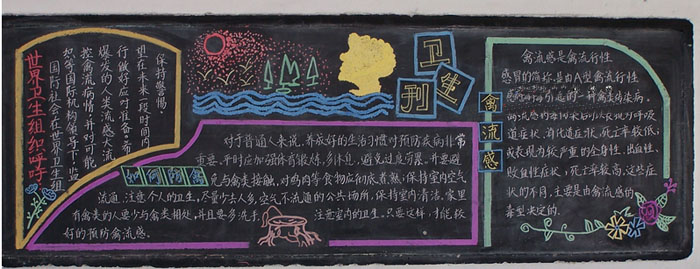 世界卫生组织呼吁
国际社会在世界卫生组
织等国际机构领导下,监
控禽流病情,并对可能
爆发的人类流感大流
行做好应对准备,
在未来一段时间内
保持警惕。
卫生刊
如何预防
对于普通人来说,养成好的生活习惯对预防疾病非常
重要,平时应加强体育锻炼,多休息,避免过度劳累,并要避
免与禽类接触,对鸡肉等食物应彻底煮熟,保持室内空气
流通,注意个人的卫生,尽量少去人多,空气不流通的公共场所,保持室内清洁,家里
有禽类的人要少与禽类相处,并且要多洗手,注意室内的卫生,只要这样,才能较
好的预防禽流感。
禽流感
禽流感是禽流行性
感冒的简称,是由A型禽流行性
感冒病毒引起的一种禽类传染病。
道症状、消化道症状,死亡率较低;
或表现为较严重的全身性、出血性、
败血性症状,死亡率较高,这些症
状的不同,主要是由禽流感的
毒型决定的。